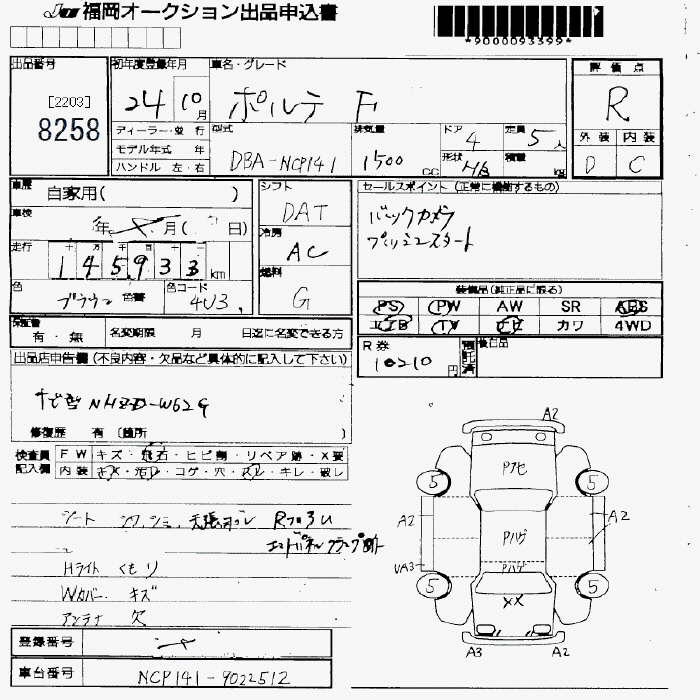 福岡オークション出品申込書
*9000093399*
出品番号
[2203]
8258
初年度登録年月
24 10月
車名・グレード
ポルテ F
評価点
R
外装 内装
D C
ディーラー・並行
モデル年式 年
ハンドル 左・右
型式
DBA-NCP141
排気量
1500 CC
ドア
4
形状
H/B
定員
5人
積量
kg
車歴
自家用( )
車検
年 月( 日)
走行
十 万 千 百 十 一
145933 km
色
ブラウン 色替
色コード
4U3
シフト
DAT
冷房
AC
燃料
G
セールスポイント (正常に機能するもの)
バックカメラ
プッシュスタート
装備品(純正品に限る)
PS PW AW SR ABS
エアB TV ナビ カワ 4WD
保証書
有・無
名変期限 月 日迄に名変できる方
R券
10210円
預託済
後日品
出品店申告欄 (不良内容・欠品など具体的に記入して下さい)
ナビ型 NHZD-W62G
修復歴 有 〔箇所 〕
検査員記入欄
FW キズ・飛石・ヒビ割・リペア跡・X要
内装 キズ・汚レ・コゲ・穴・スレ・キレ・破レ
シート シワ、シミ、天張ヨゴレ
Hライト くもり
Wカバー キズ
アンテナ 欠
登録番号
車台番号
NCP141-9022512
A2
5 5
A2 A2
UA3
Pハゲ
Pハゲ
XX
5 5
A3 A2